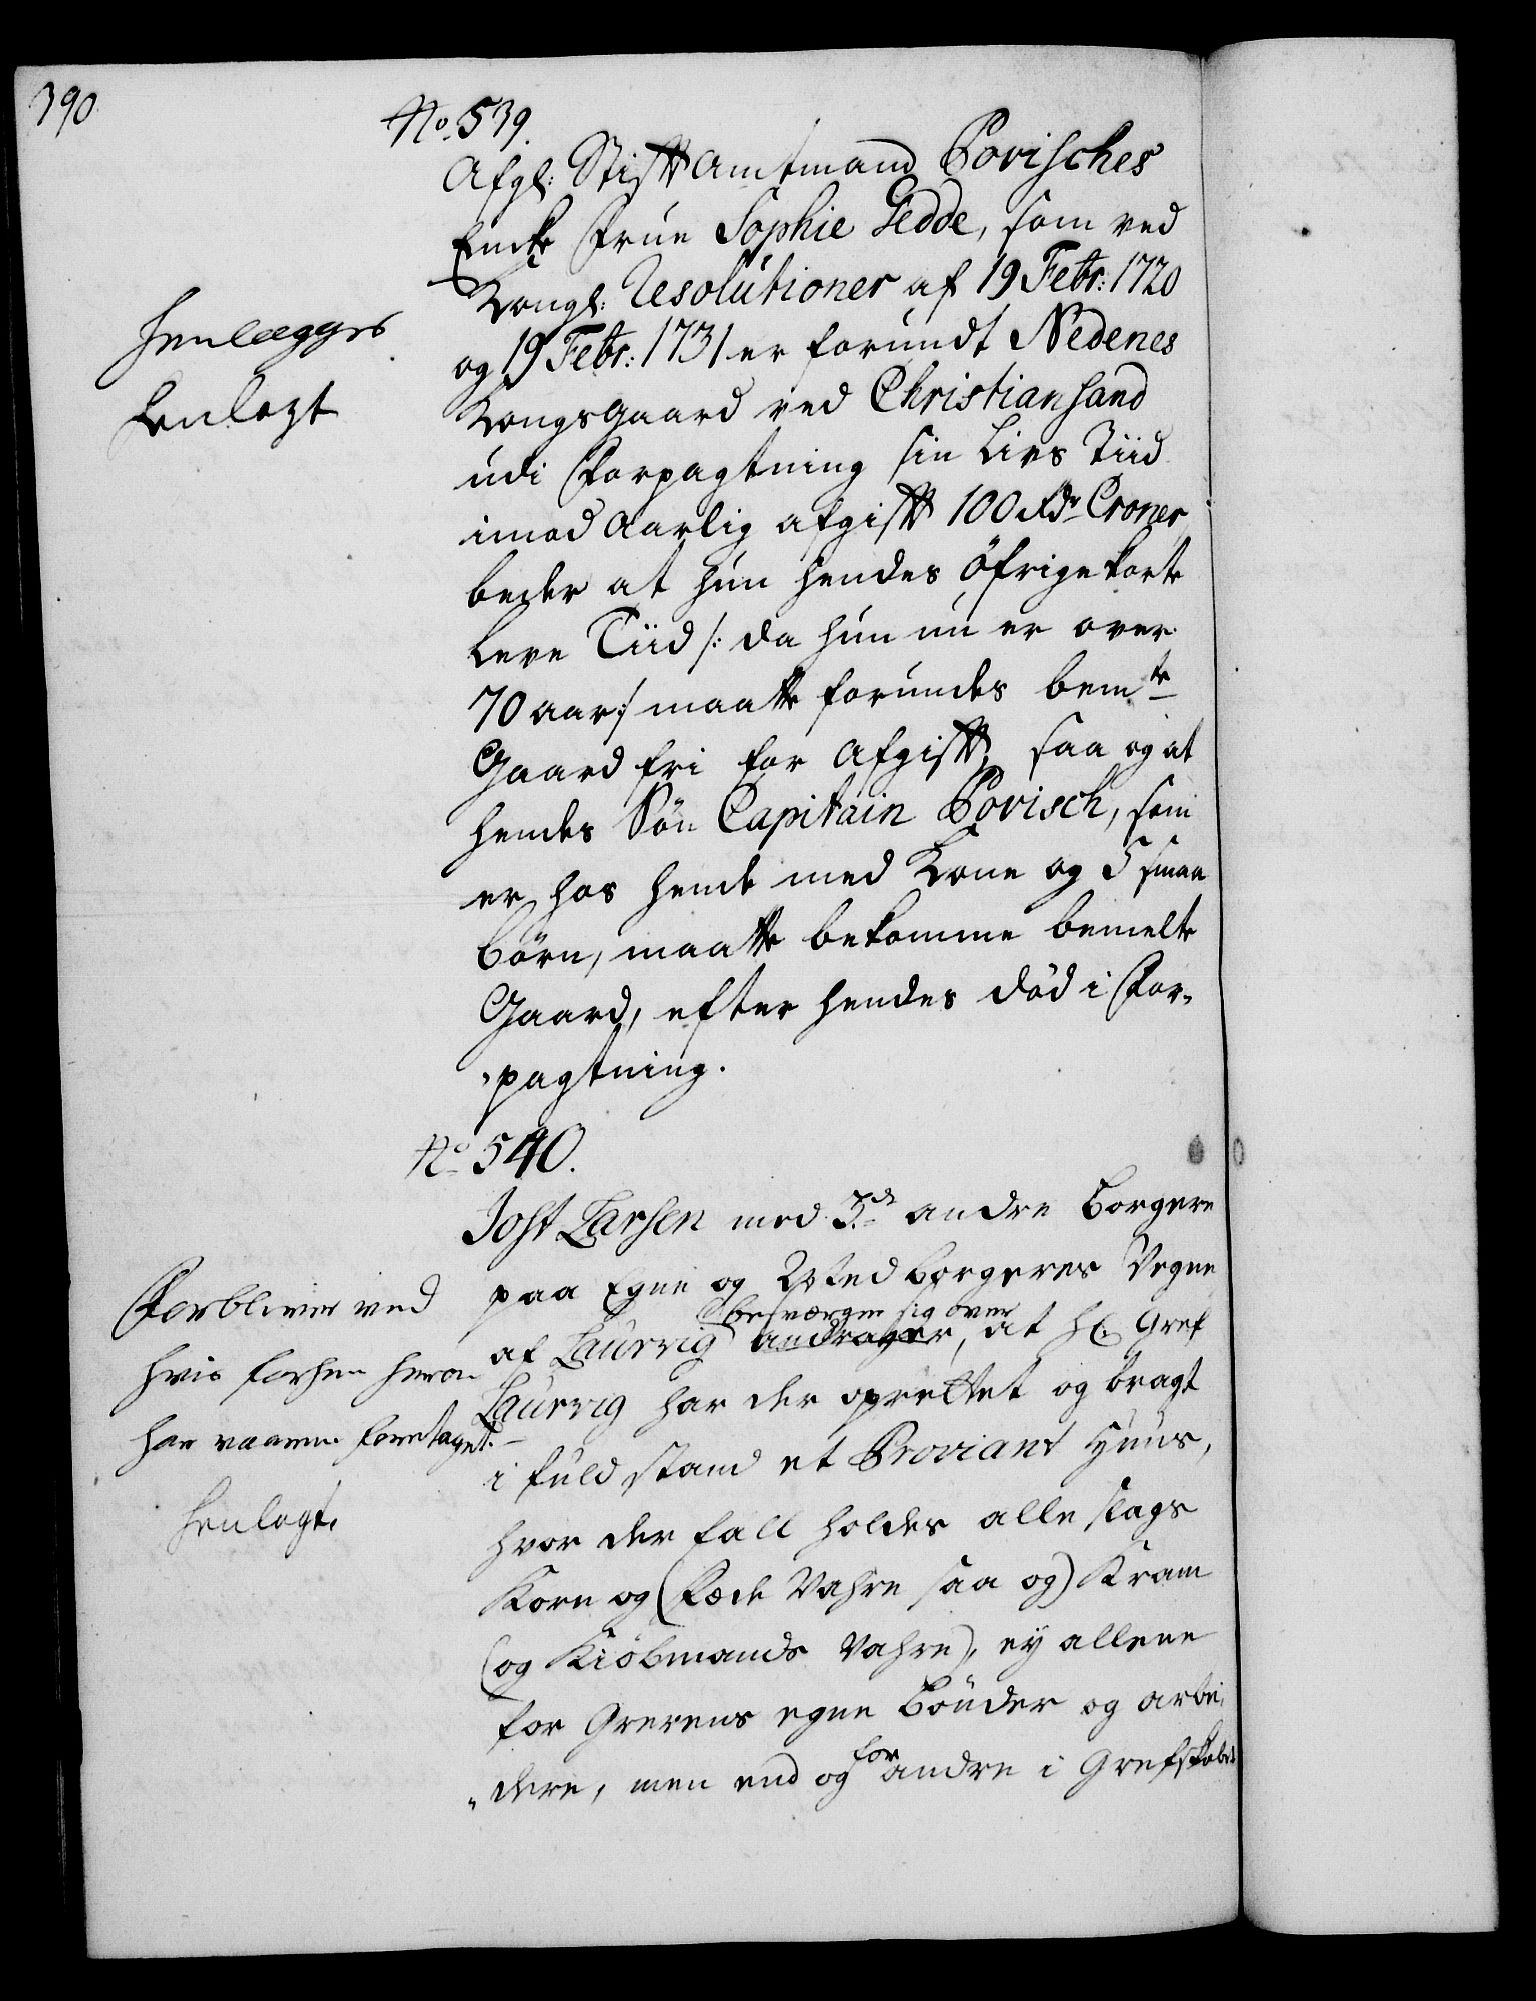 390
No. 539.
Afgl: Stiftamtmand Povisches
Encke Frue Sophie Gedde, som ved
Kongl: Resolutioner af 19 Febr: 1720
og 19 Febr: 1731 er forundt Nedenes
Kongsgaard ved Christiansand
udi Forpagtning sin Livs Tiid
imod Aarlig afgift 100 Rdr Croner
beder at hun hendes öfrige korte
Leve Tiid /: da hun nu er over
70 aar :/ maatte forundes bemte
Gaard fri for Afgift, saa og at
hendes Sön Capitain Povisch, som
er hos hende med Kone og 5 smaa
börn, maatte bekomme bemelte
Gaard, efter hendes död i For-
-pagtning.
Henlægges
Henlagt
No 540.
Jost Larsen med 3de andre Borgere
paa Egne og Medborgeres Vegne
af Laurvig andrager, besværger sig over, at H. Gref
Laurvig har der oprettet og bragt
i fuld stand et Proviant Huus,
hvor der fall holdes alle slags
Korn og (Fæde Vahre saa og) Kram
(og Kiöbmands Vahre), ey allene
for Grevens egne Bönder og arbei-
-dere, men end og for andre i Grefskabet
Forbliver ved
hvis forhen herom
har været foretaget.
Henlagt.